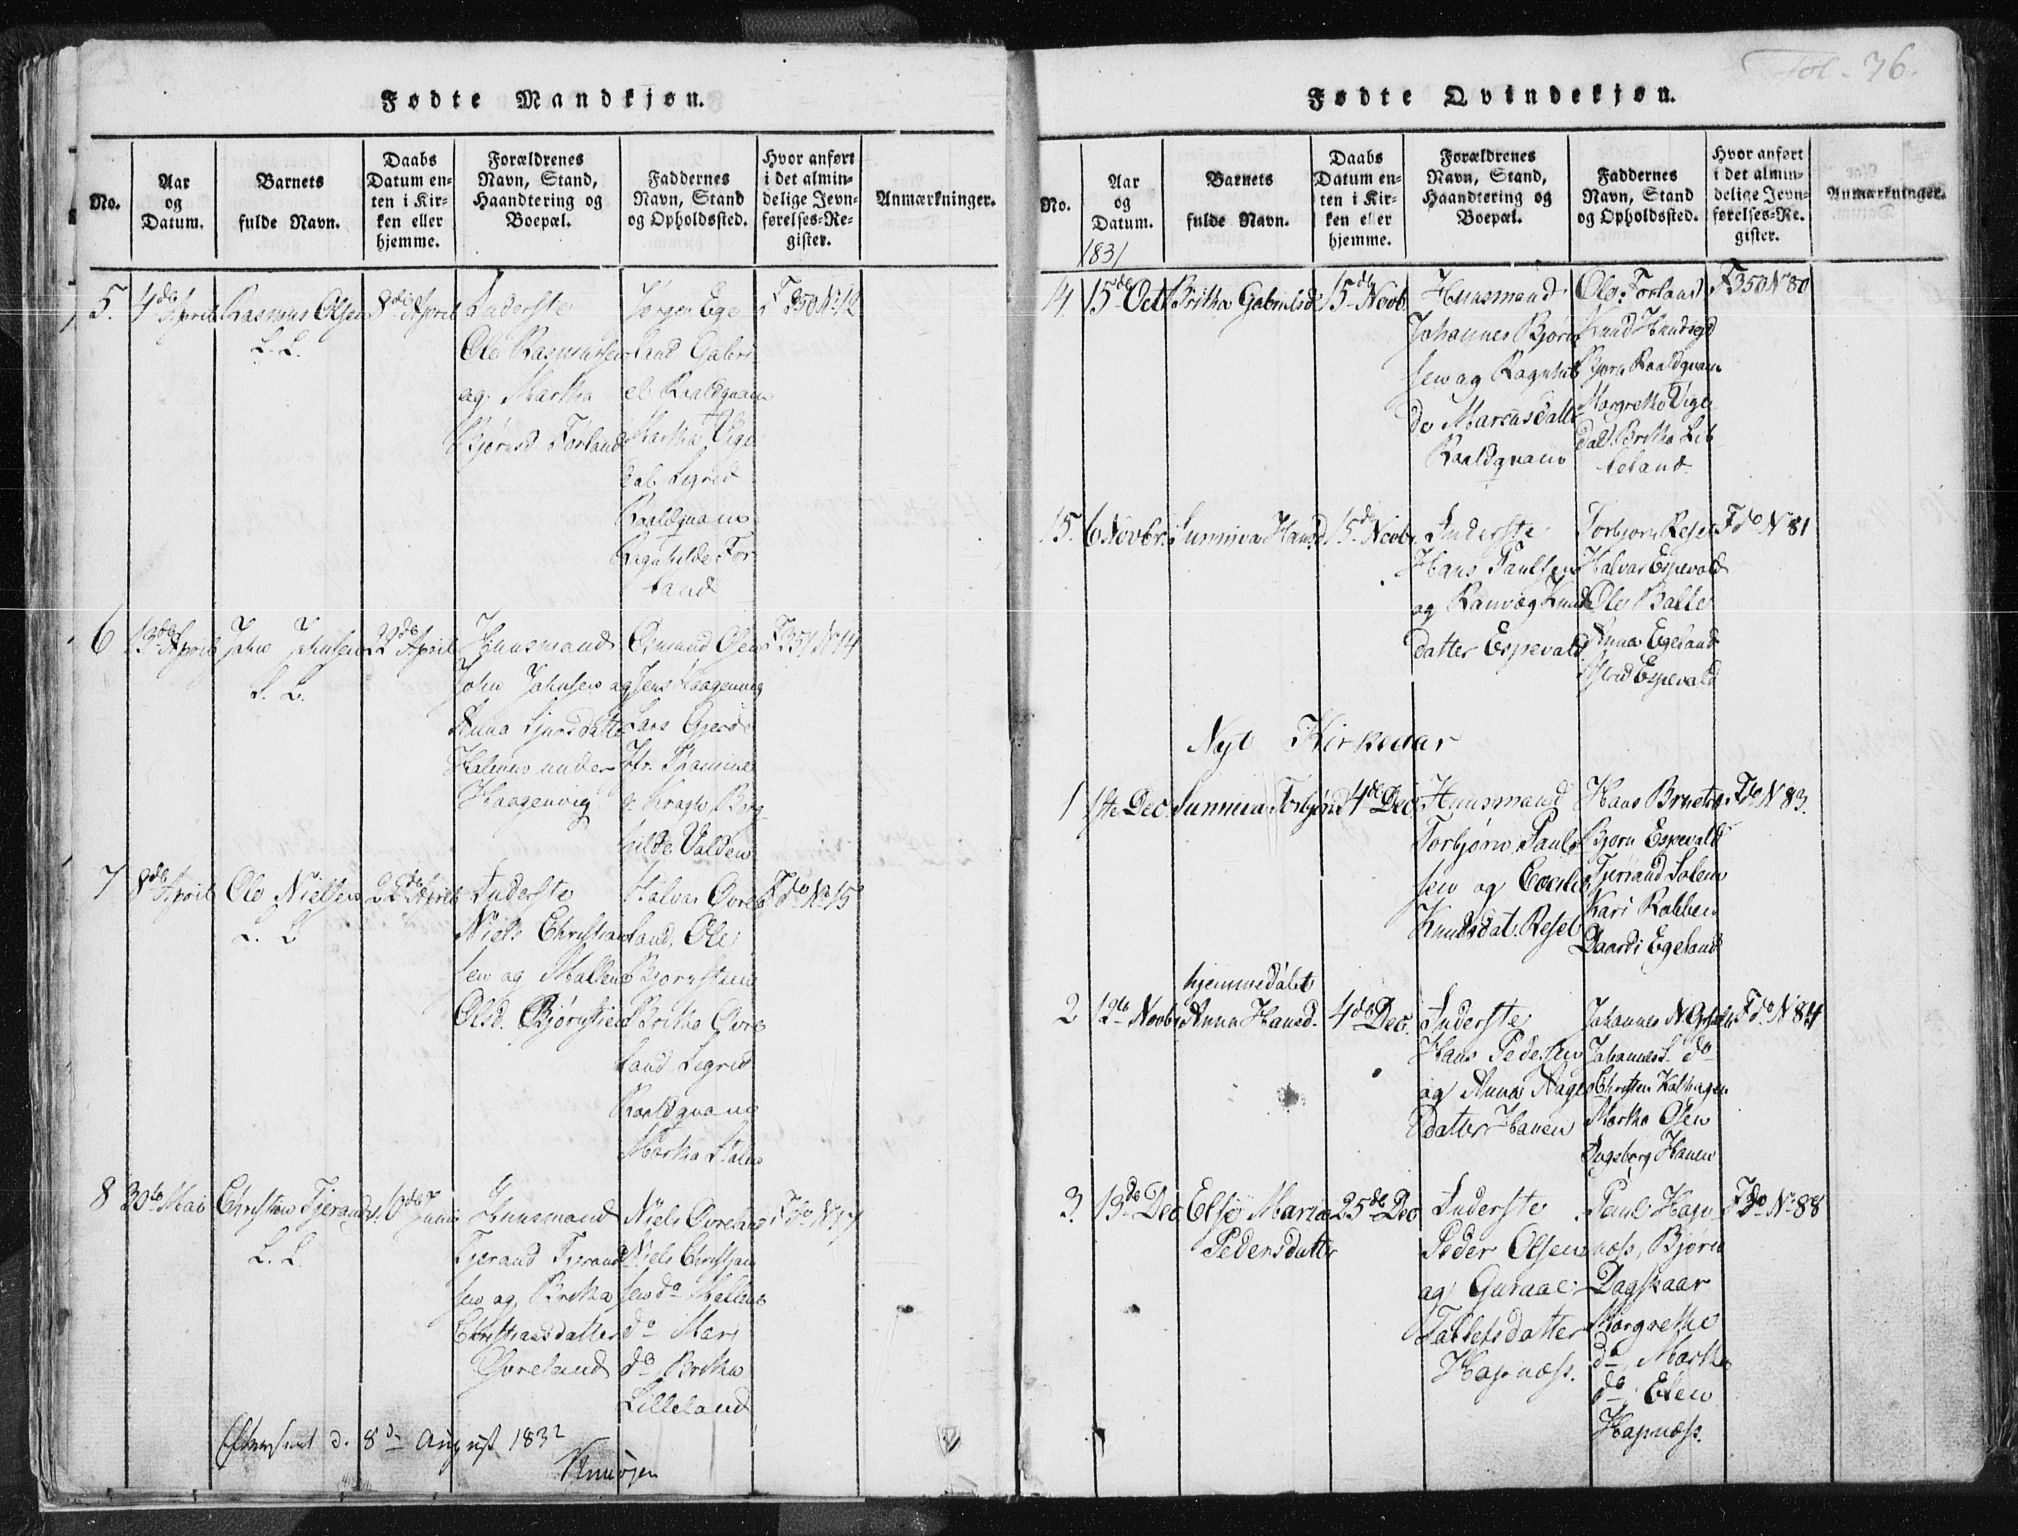 Fødte Mandkjøn.
No.
Aar
og
Datum.
Barnets
fulde Navn.
Daabs
Datum en-
ten i Kir-
ken eller
hjemme.
Forældrenes
Navn, Stand,
Haandtering og
Boepæl.
Faddernes
Navn, Stand
og Opholdssted.
Hvor anført
i det almin-
delige Jevn-
førelses-Re-
gister.
Anmærkninger.
5.
4de April
Rasmus Olsen
L. L.
8de April
Inderste
Ole Rasmussen
og Martha
Bjørnsd. Forland
Jørgen Ege
land Gabri
el Raaldquam
Martha Vige
dal Sigrid
Raaldquam
Ragnhilde For
land
F 350 No 12
6
13de April
John Johnsen
L. L.
22de April
Huusmand
John Johnsen og
Anna Sjursdatter
Holmen under
Haagenvig
Osmund Olsen
Jens Haagenvig
Lars Gjerde
Jfr. Thamine
Kragh Borg
hilde Valden
F 351 No 14
7
8de April
Ole Nielsen
L. L
22de April
Inderste
Niels Christian
sen og Malene
Olsd. Bjørnstien
Halvar Øvre
land, Ole
Bjørnstien
Britha Øvre
land Sigrid
Raaldquam
Martha Salen
Fdo No 15
8
30te Mai
Christian Tjerands.
L. L.
10de Junii
Huusmand
Tjerand Tjerand
sen og Britha
Christiansdatter
Øvreland
Niels Øvreland
Niels Christian
sen do Malene
do Mari
do Britha
Lilleland
Fdo No 17
Efterseet d. 8de August 1832
Fødte Qvindekjøn.
Fol. 76.
No.
Aar
og
Datum.
1831
Barnets
fulde Navn.
Daabs
Datum en-
ten i Kir-
ken eller
hjemme.
Forældrenes
Navn, Stand,
Haandtering og
Boepæl.
Faddernes
Navn, Stand
og Opholdssted.
Hvor anført
i det almin-
delige Jevn-
førelses-Re-
gister.
Anmærkninger.
14.
15de Octb
Britha Gabrielsd.
15de Novb.
Huusmand
Johannes Bjørn
sen og Ragnhil
de Marcusdatter
Raaldquam
Ole Forland
Bjørn Raaldquam
Margrethe Vige
dal Britha Lil
leland
F 350 No 80
15.
6 Novbr.
Sunniva Hansd
15de Novb.
Inderste
Hans Paulsen
og Ranvæg Knuds
datter Espevald
Torbjørn Resel
Halvar Espevald
Ole Balle
Anna Egeland
Espevald
Fdo No 81
Nyt Kirkeaar
1
1ste Dec.
Sunniva Torbjørnsd
4de Dec.
Huusmand
Torbjørn Paul
sen og
Knudsdat. Resel
Hans
Bjørn Espevald
Tjerand Salen
Kari Robben
Egeland
Fdo No 83.
2
12te Novbr
hjemmedøbt
Anna Hansd.
4de Dec.
Inderste
Hans Pedersen
og Anna Aage
datter Hanen
Johannes N.
Johannes do
Christen
Martha Olsen
Ingeborg Hanen
Fdo No 84
3.
13de Dec
Elsje Maria
Pedersdatter
25de Dec
Inderste
Peder Olsen
og Guroe
Tallefsdatter
Hapnæss.
Paul Hap
næss, Bjørn
Dagskaar
Margrethe
do, Martha
do Elen
Hapnæss.
Fdo No 88